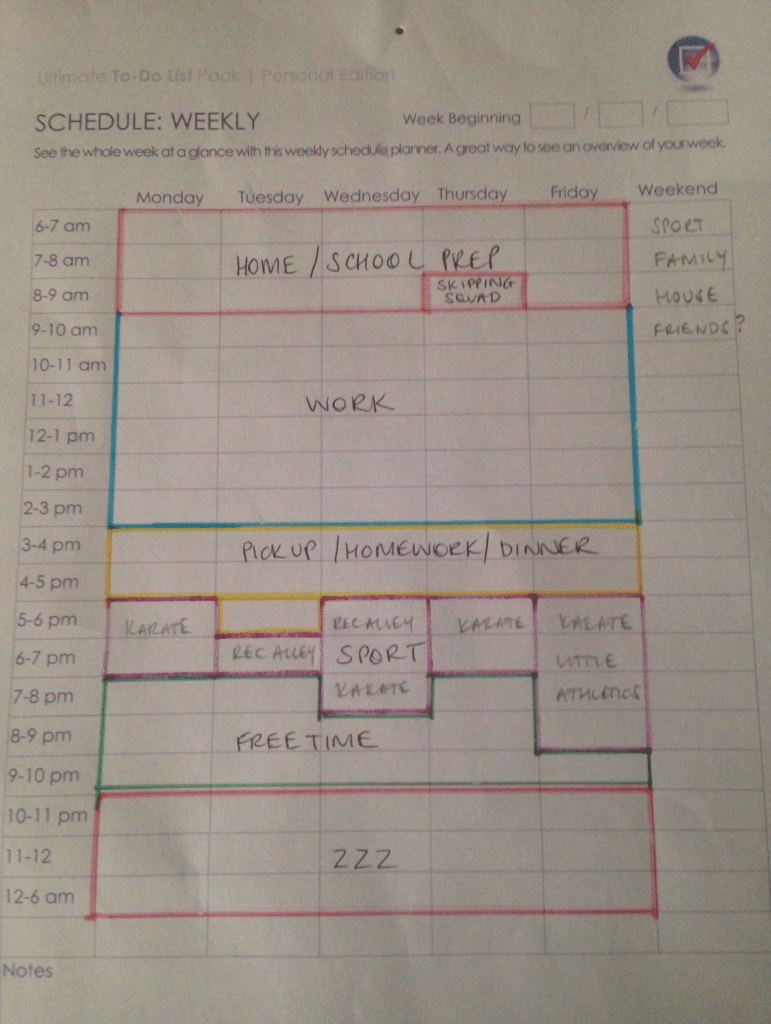 Ultimate To-Do List Pack | Personal Edition
SCHEDULE: WEEKLY
Week Beginning / /
See the whole week at a glance with this weekly schedule planner. A great way to see an overview of your week.
Monday Tuesday Wednesday Thursday Friday Weekend
6-7 am SPORT
7-8 am HOME / SCHOOL PREP FAMILY
8-9 am SKIPPING SQUAD HOUSE
9-10 am FRIENDS?
10-11 am
11-12 WORK
12-1 pm
1-2 pm
2-3 pm
3-4 pm PICK UP / HOMEWORK / DINNER
4-5 pm
5-6 pm KARATE REC ALLEY KARATE KARATE
6-7 pm REC ALLEY SPORT LITTLE
7-8 pm KARATE ATHLETICS
8-9 pm FREE TIME
9-10 pm
10-11 pm
11-12 ZZZ
12-6 am
Notes